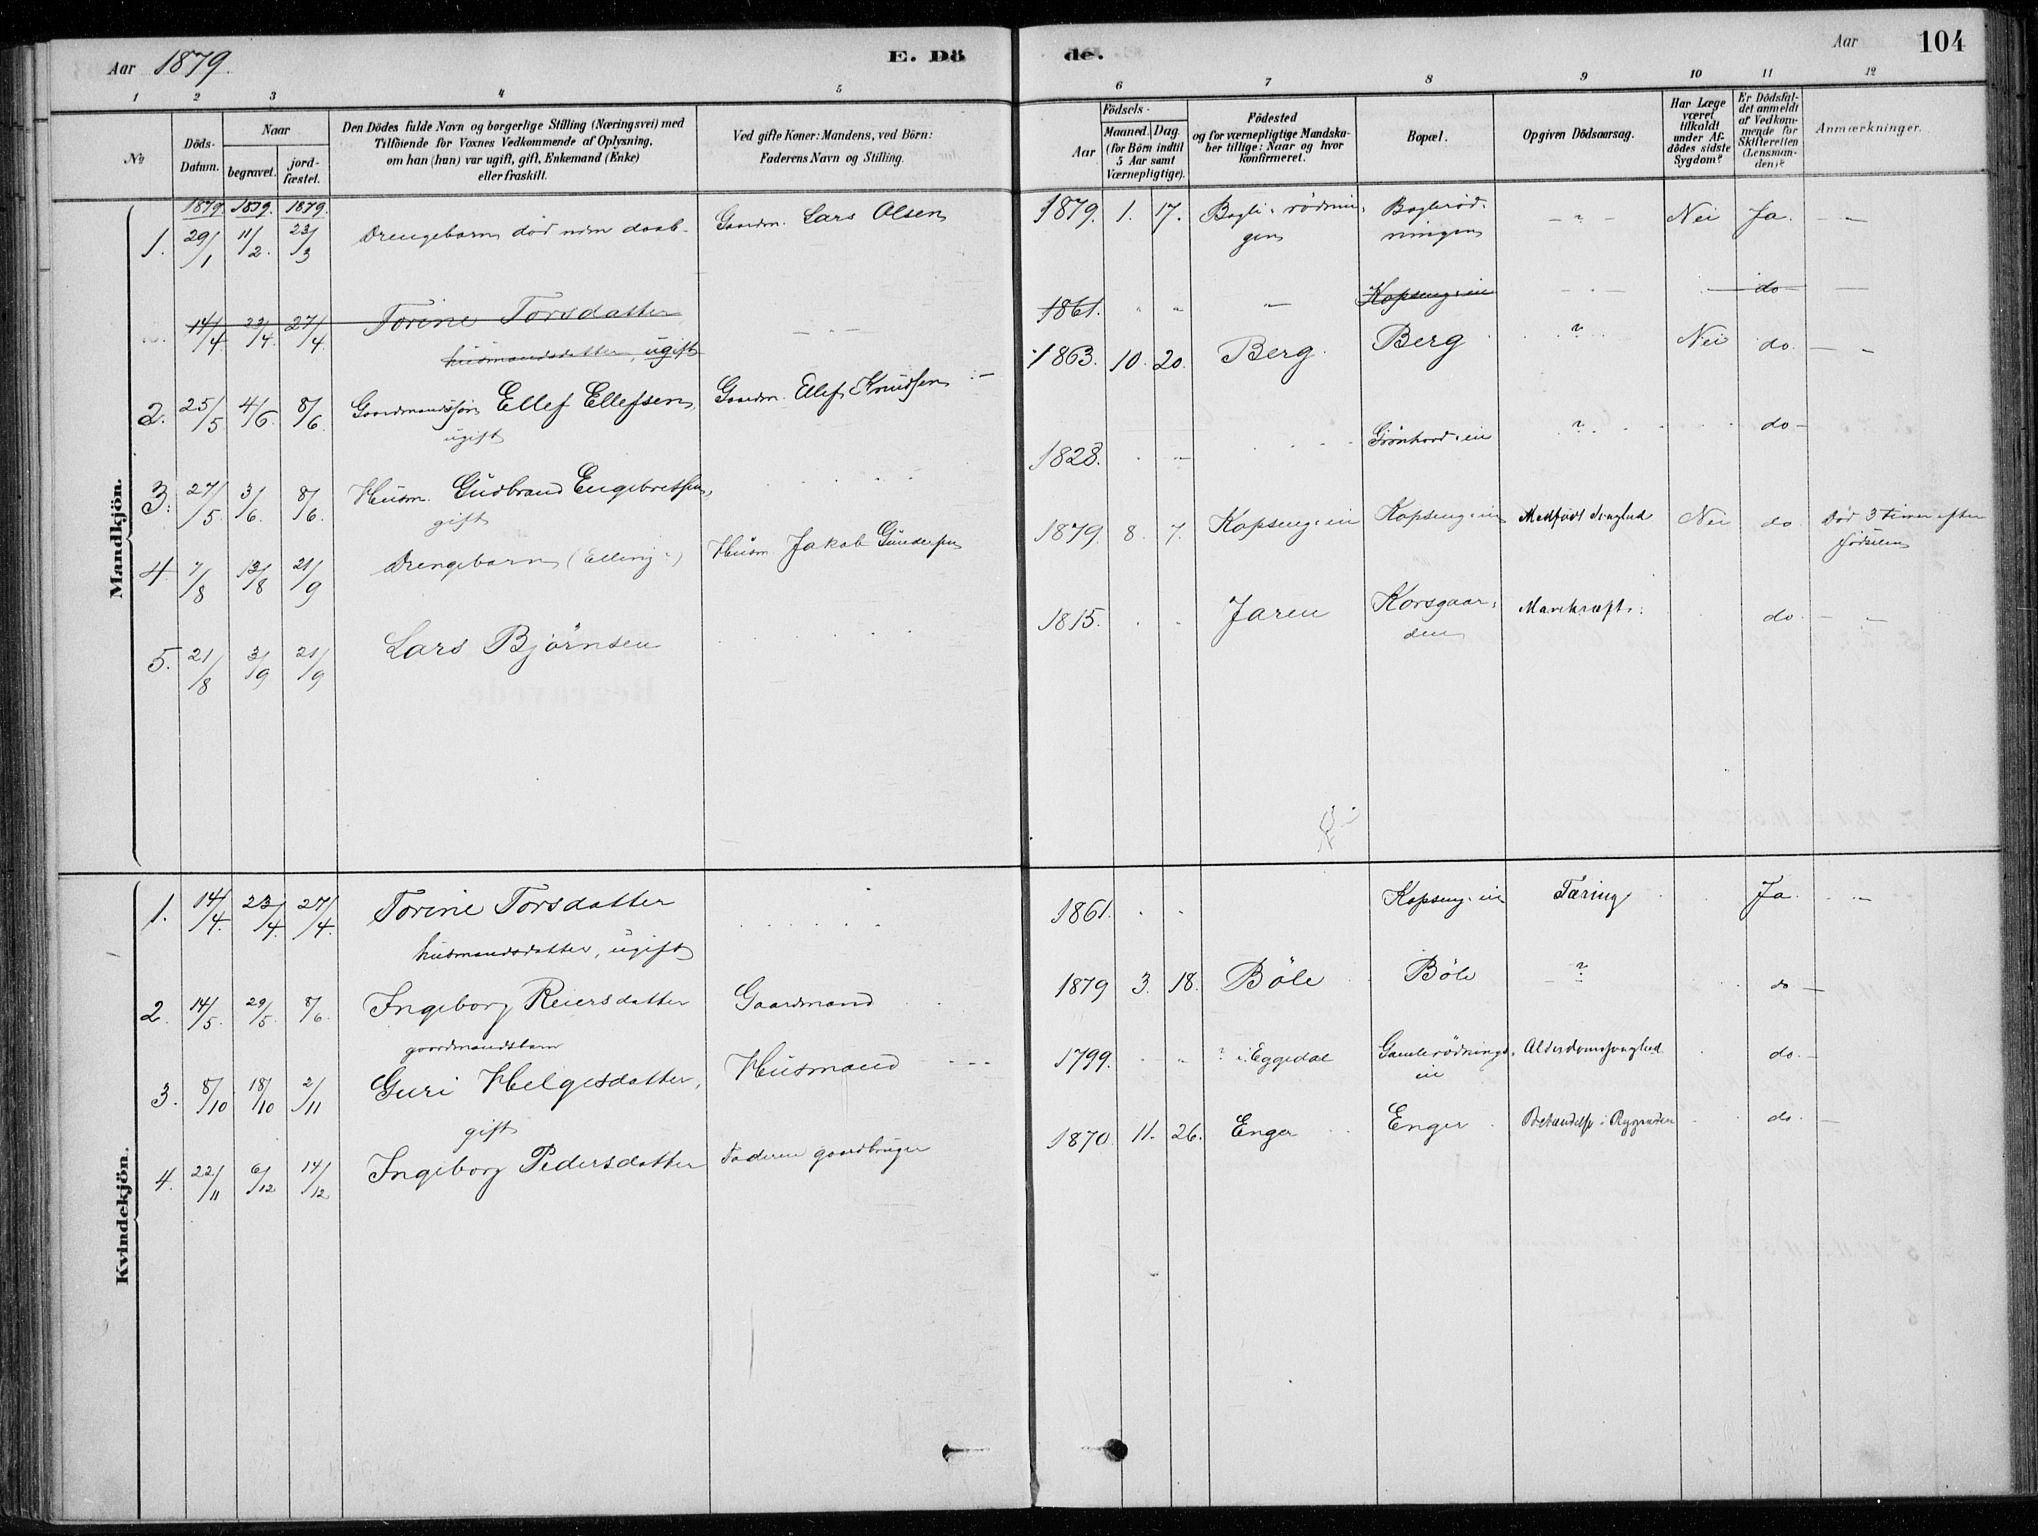 Aar 1879. E. Dö
de. Aar 104
1 2 3 4 5 6 7 8 9 10 11 12
No
Döds-
Datum.
Naar
begravet.
jord-
fæstet.
Den Dödes fulde Navn og borgerlige Stilling (Næringsvei) med
Tilföiende for Voxnes Vedkommende af Oplysning,
om han (hun) var ugift, gift, Enkemand (Enke)
eller fraskilt.
Ved gifte Koner: Mandens, ved Börn:
Faderens Navn og Stilling.
Födsels-
Aar
Maaned. Dag.
(for Börn indtil
5 Aar samt
Værnepligtige).
Födested
og for værnepligtige Mandska-
ber tillige: Naar og hvor
konfirmeret.
Bopæl.
Opgiven Dödsaarsag.
Har Læge
været
tilkaldt
under Af-
dödes sidste
Sygdom?
Er Dödsfal-
det anmeldt
af Vedkom-
mende for
Skifteretten
(Lensman-
den)?
Anmærkninger.
Mandkjön.
1879. 1879. 1879.
1. 29/1 11/2. 23/3 Drengebarn død uden daab. Gaardm. Lars Olsen 1879. 1. 17. Bagli-rødnin- Baglirød- - " - Nei Ja. - -
gen ningen
14/4 23/4. 27/4. Torine Torsdatter - " - 1861. " " - Kopseng-ie - " - do -
husmandsdatter, ugift
2. 25/5 4/6 8/6. Gaardmandssøn Ellef Ellefsen, Gaardm. Ellef Knudsen 1863. 10. 20. Berg. Berg ? Nei do - -
ugift
3. 27/5. 3/6. 8/6. Husm. Gudbrand Engebretsen, 1828. Grønhovd-ie ? do -
gift
4 7/8 13/8 21/9 Drengebarn (Elling) Husm. Jakob Gundersen 1879. 8. 7. Kopseng-ie Kopseng-ie Medfødt svaghed Nei do Død 3 timer efter
fødselen
5. 21/8 3/9 21/9 Lars Bjørnsen 1815. Jaren Korsgaar- Marekræft. do - -
den
Kvindekjön.
1. 14/4. 23/4. 27/4. Torine Torsdatter 1861. Kopseng-ie Tæring Ja. -
husmandsdatter, ugift
2. 14/5. 29/5. 8/6. Ingeborg Reiersdatter Gaardmand 1879 3. 18. Bøle Bøle - ? do -
gaardmandsbarn
3. 8/10 18/10 2/11 Guri Helgesdatter, Husmand 1799. ? i Eggedal Gamlerødnings- Alderdomssvaghed do -
gift ie
4. 22/11 6/12 14/12 Ingeborg Pedersdatter Faderen gaardbruger 1870 11. 26. Enger Enger Betændelse i Rygraden do -